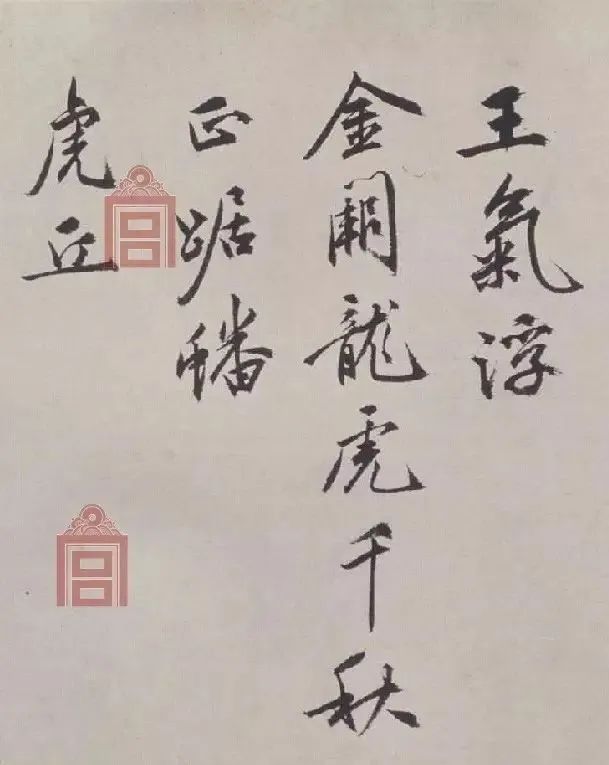 王氣浮
金闕龍虎千秋
正踞蟠
虎丘